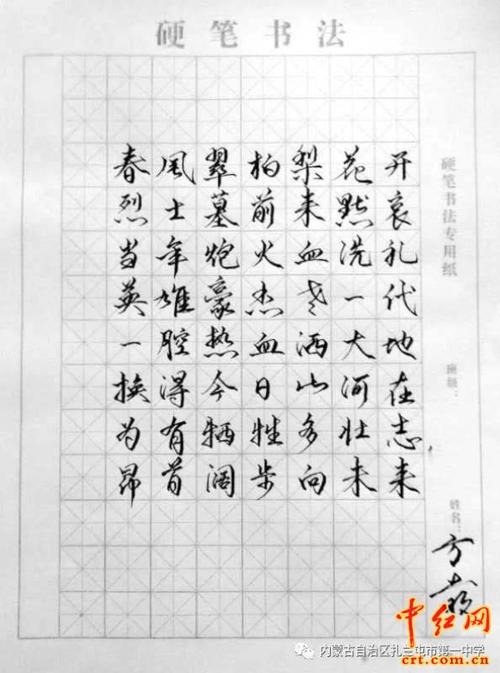 硬笔书法
春风翠柏梨花开
烈士墓前来默哀
当年炮火血洗礼
英雄豪杰老一代
一腔热血洒大地
换得今日山河在
为有牺牲多壮志
昂首阔步向未来
硬笔书法专用纸
班级：
姓名：方
中红网
crt.com.cn
内蒙古自治区扎兰屯市第一中学